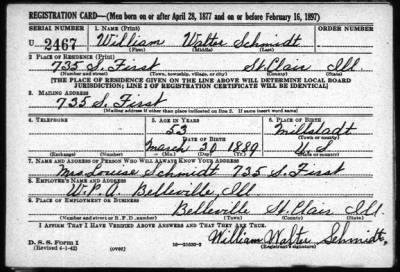 REGISTRATION CARD—(Men born on or after April 28, 1877 and on or before February 16, 1897)
SERIAL NUMBER 1. NAME (Print) ORDER NUMBER
U 2467 William Walter Schmidt
(First) (Middle) (Last)
2. PLACE OF RESIDENCE (Print)
735 S. First St. Clair Ill.
(Number and street) (Town, township, village, or city) (County) (State)
[THE PLACE OF RESIDENCE GIVEN ON THE LINE ABOVE WILL DETERMINE LOCAL BOARD
JURISDICTION; LINE 2 OF REGISTRATION CERTIFICATE WILL BE IDENTICAL]
3. MAILING ADDRESS
735 S. First
[Mailing address if other than place indicated on line 2. If same insert word same]
4. TELEPHONE 5. AGE IN YEARS 6. PLACE OF BIRTH
53 Millstadt
DATE OF BIRTH (Town or county)
March 30 1889 U S
(Exchange) (Number) (Mo.) (Day) (Yr.) (State or country)
7. NAME AND ADDRESS OF PERSON WHO WILL ALWAYS KNOW YOUR ADDRESS
Mrs Louise Schmidt 735 S. First
8. EMPLOYER'S NAME AND ADDRESS
W.P.A. Belleville, Ill.
9. PLACE OF EMPLOYMENT OR BUSINESS
Belleville St. Clair Ill.
(Number and street or R. F. D. number) (Town) (County) (State)
I AFFIRM THAT I HAVE VERIFIED ABOVE ANSWERS AND THAT THEY ARE TRUE.
D. S. S. Form 1 William Walter Schmidt
(Revised 4-1-42) (over) (Registrant's signature)